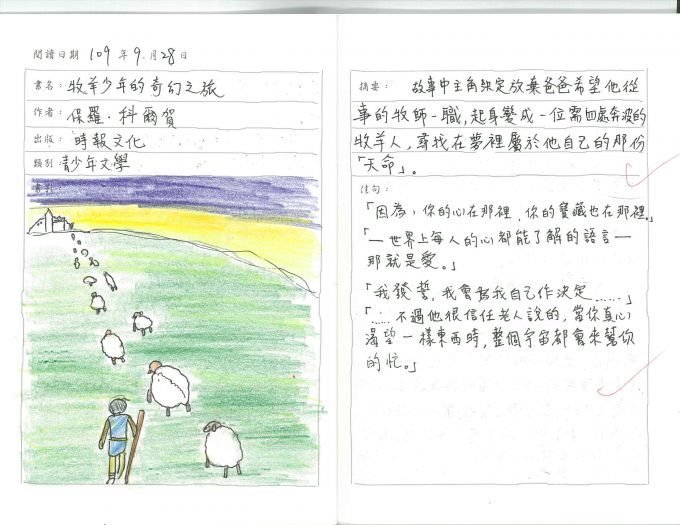 閱讀日期 109 年 9 月 28 日
書名：牧羊少年的奇幻之旅
作者：保羅．科爾賀
出版：時報文化
類別：青少年文學
摘要：故事中主角決定放棄爸爸希望他從
事的牧師一職，起身變成一位需四處奔波的
牧羊人，尋找在夢裡屬於他自己的那份
「天命」。
佳句：
「因為，你的心在那裡，你的寶藏也在那裡。」
「—世界上每人的心都能了解的語言—
那就是愛。」
「我發誓，我會為我自己作決定……」
「……不過他很信任老人說的，當你真心
渴望一樣東西時，整個宇宙都會來幫你
的忙。」